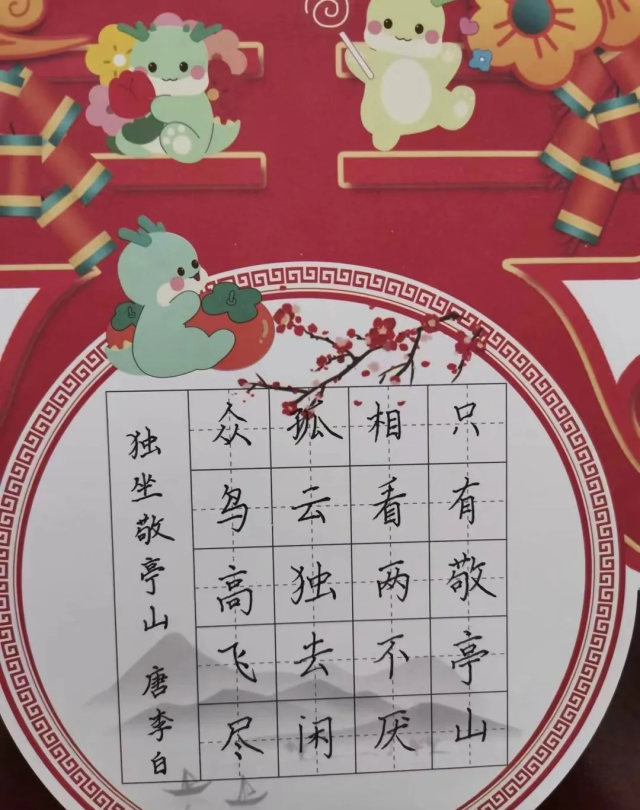 独坐敬亭山 唐 李白
众鸟高飞尽
孤云独去闲
相看两不厌
只有敬亭山